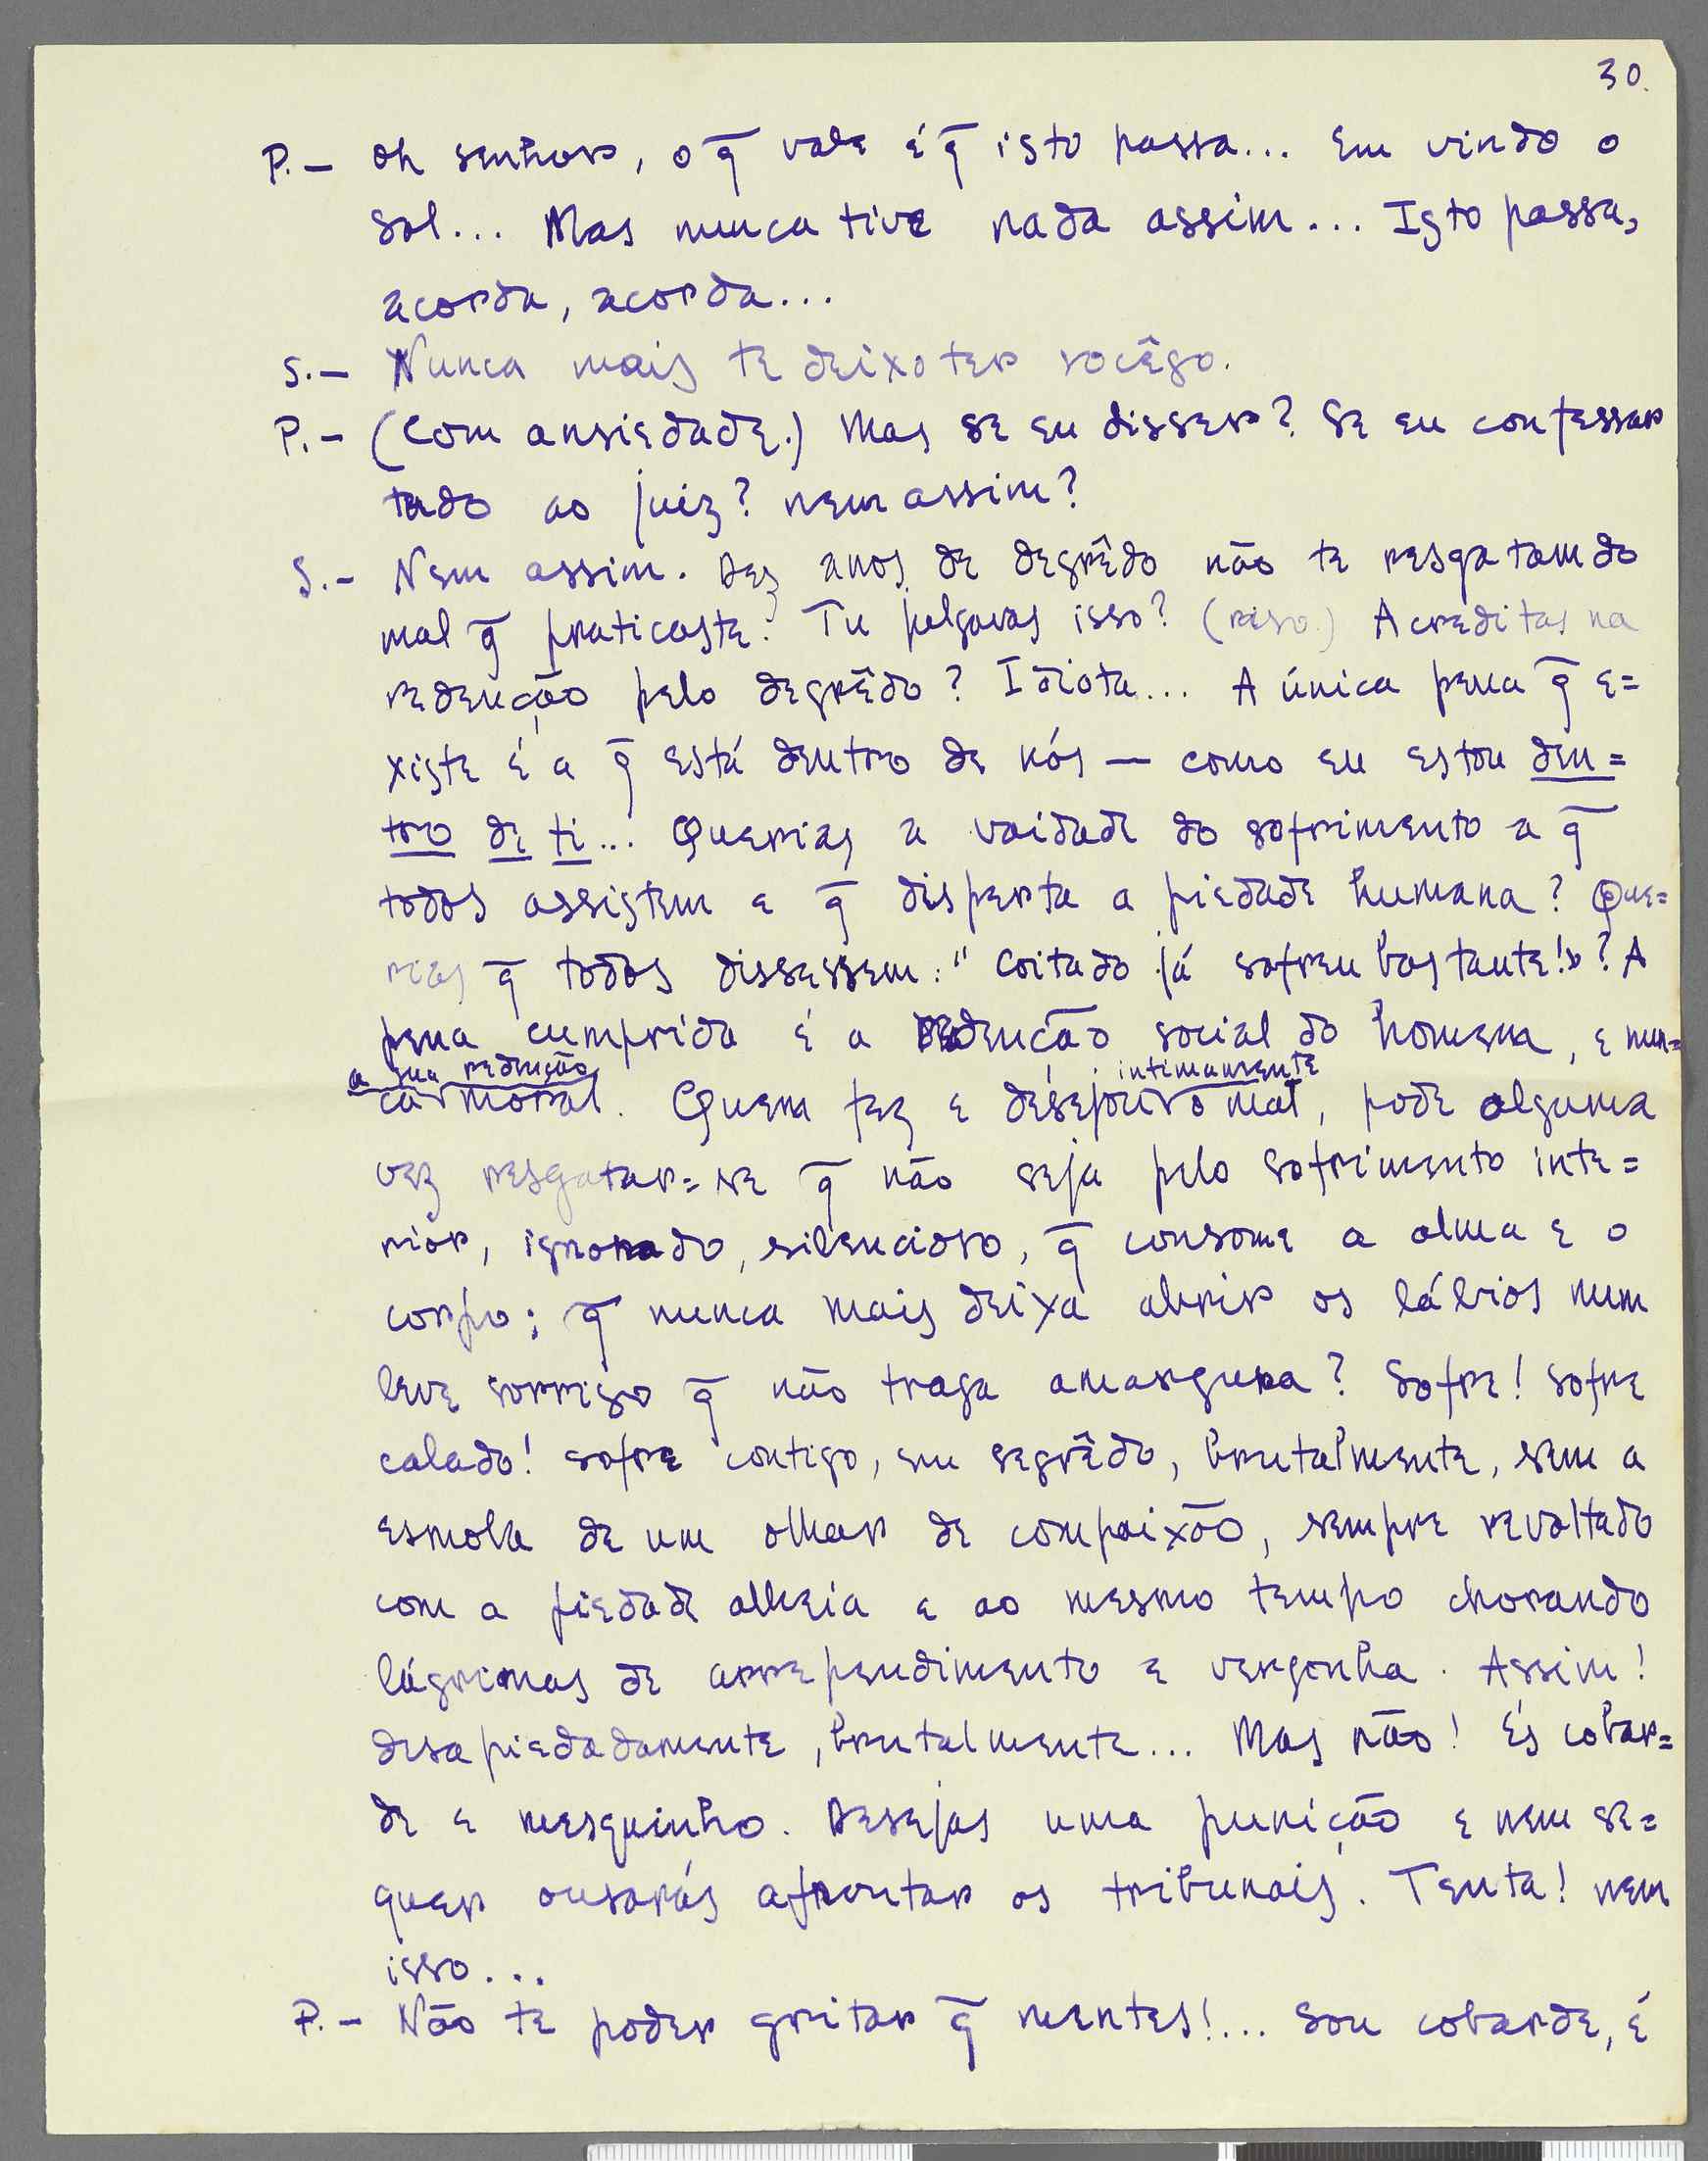 30.
P. — Oh senhor, o q̄ vale é q̄ isto passa... Em vindo o
sol... Mas nunca tive nada assim... Isto passa,
acorda, acorda...
S. — Nunca mais te deixo ter socêgo.
P. — (Com ansiedade.) Mas se eu disser? Se eu confessar
tudo ao juiz? nem assim?
S. — Nem assim. Dez anos de degrêdo não te resgatam do
mal q̄ praticaste. Tu julgavas isso? (riso.) Acreditas na
redenção pelo degrêdo? Idiota... A única pena q̄ e=
xiste é a q̄ está dentro de nós — como eu estou den=
tro de ti... Querias a vaidade do sofrimento a q̄
todos assistem e q̄ disperta a piedade humana? Que=
rias q̄ todos dissessem: "Coitado já sofreu bastante!»? A
pena cumprida é a redenção social do homem, e nun=
a sua redenção intimamente
ca moral. Quem fez e desejou o mal, pode alguma
vez resgatar=se q̄ não seja pelo sofrimento inte=
rior, ignorado, silencioso, q̄ consome a alma e o
corpo; q̄ nunca mais deixa abrir os lábios num
leve sorriso q̄ não traga amargura? Sofre! sofre
calado! sofre contigo, em segrêdo, brutalmente, sem a
esmola de um olhar de compaixão, sempre revoltado
com a piedade alheia e ao mesmo tempo chorando
lágrimas de arrependimento e vergonha. Assim!
desapiedadamente, brutalmente... Mas não! És cobar=
de e mesquinho. Desejas uma punição e nem se=
quer ousarás afrontar os tribunais. Tenta! nem
isso...
P. — Não te poder gritar q̄ mentes!... Sou cobarde, é